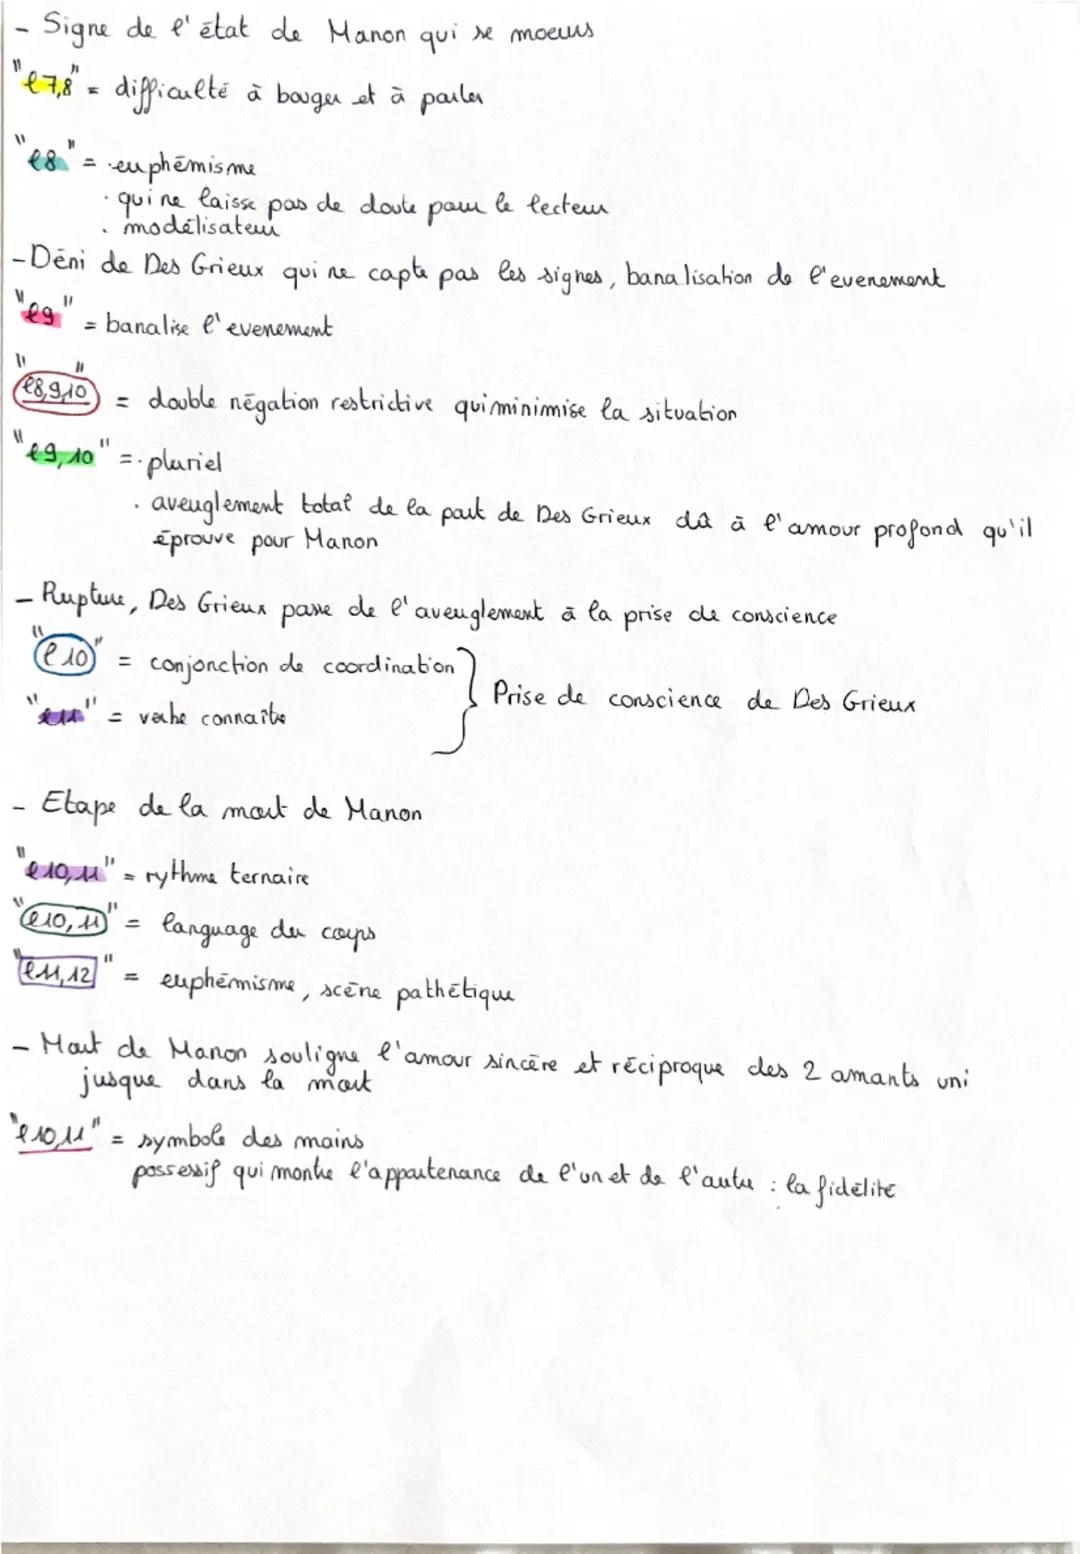 - Signe de l'état de Manon qui se moeurs
"l7,8" = difficulté à bouger et à parler
"l8" = · euphémisme
· qui ne laisse pas de doute pour le lecteur
· modélisateur
- Déni de Des Grieux qui ne capte pas les signes, banalisation de l'evenement
"l9" = banalise l'evenement
"l8,9,10" = double négation restrictive qui minimise la situation
"l9,10" = · pluriel
· aveuglement total de la part de Des Grieux dû à l'amour profond qu'il
éprouve pour Manon
- Rupture, Des Grieux passe de l'aveuglement à la prise de conscience
"l10" = conjonction de coordination
"l11" = verbe connaître
} Prise de conscience de Des Grieux
- Etape de la mort de Manon
"l10,11" = rythme ternaire
"l10,11" = language du corps
"l11,12" = euphémisme, scène pathétique
- Mort de Manon souligne l'amour sincère et réciproque des 2 amants uni
jusque dans la mort
"l10,11" = symbole des mains
possessif qui montre l'appartenance de l'un et de l'autre : la fidélité